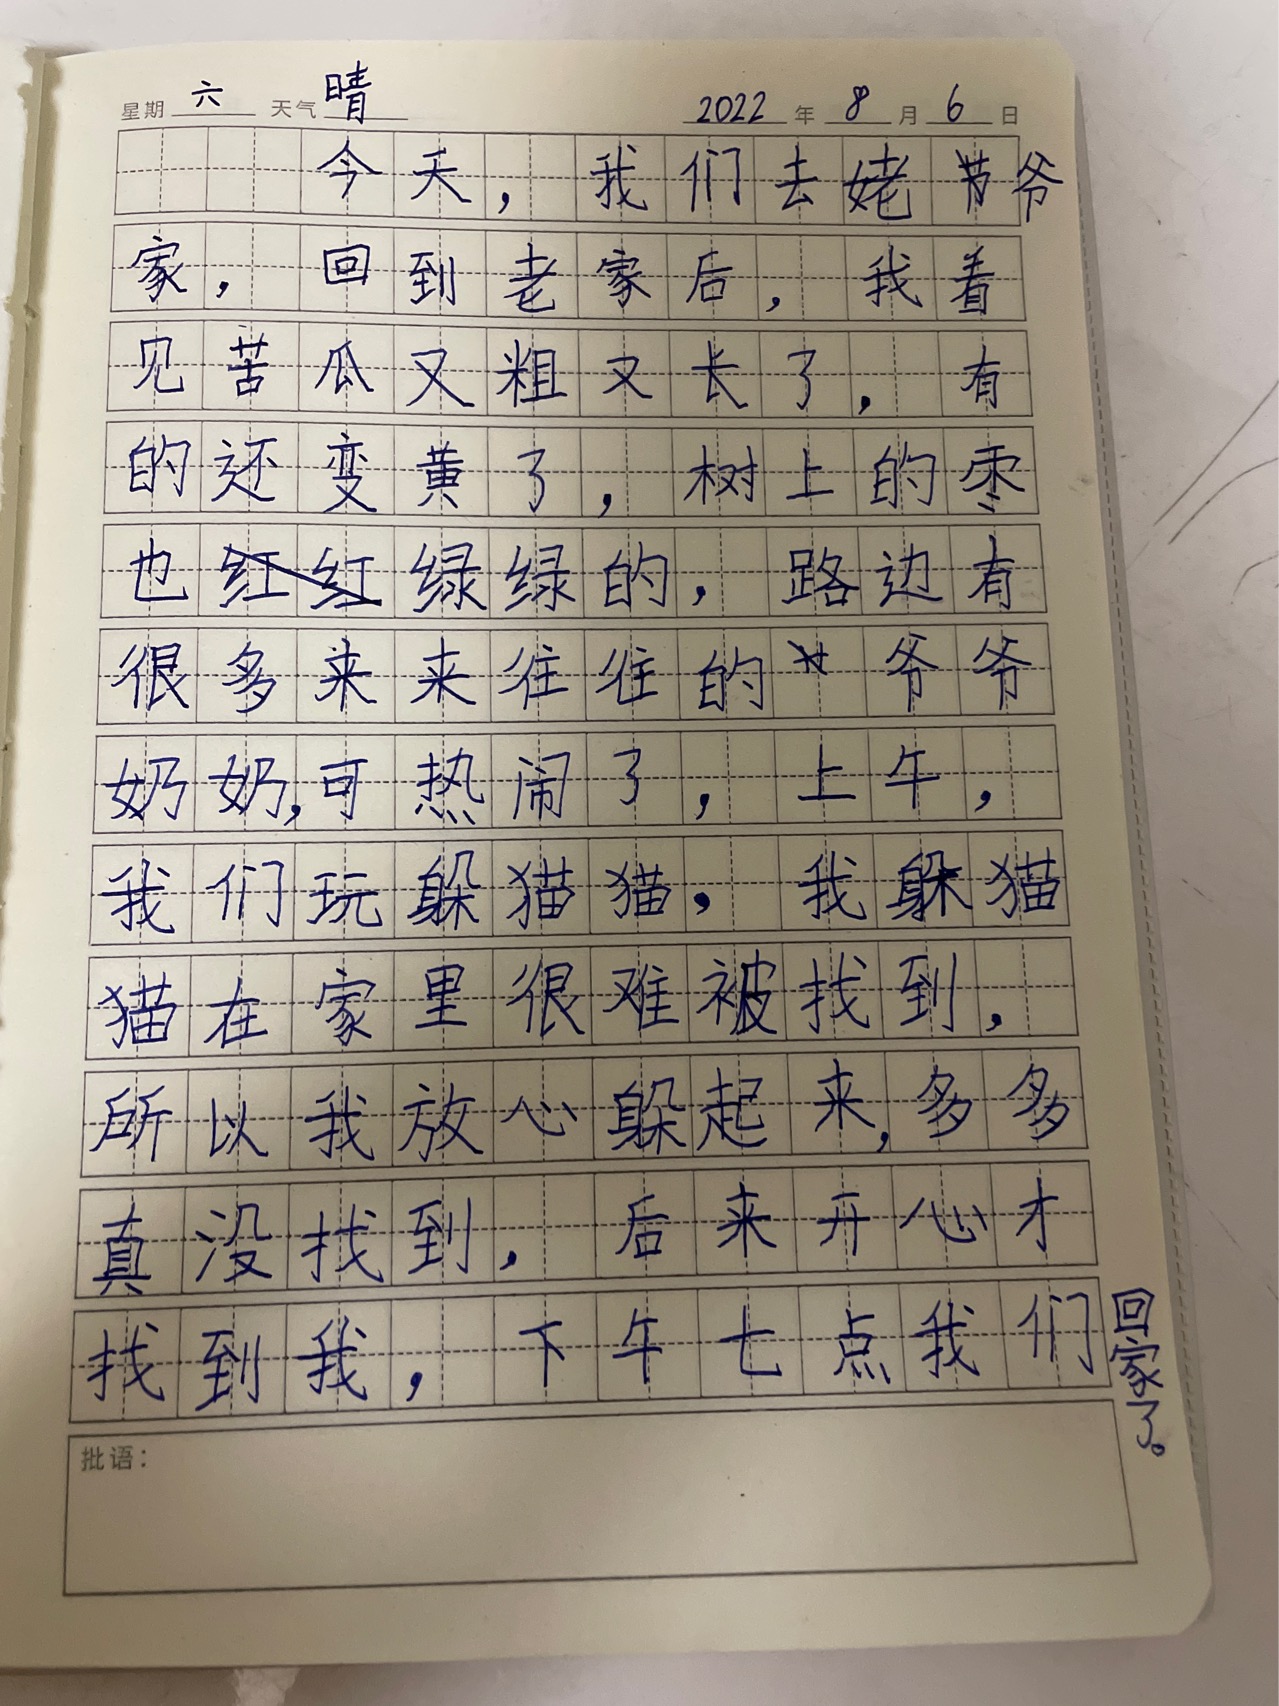 星期 六 天气 晴 2022 年 8 月 6 日
今天，我们去姥爷
家，回到老家后，我着
见苦瓜又粗又长了，有
的还变黄了，树上的枣
也红红绿绿的，路边有
很多来来往往的爷爷
奶奶，可热闹了，上午，
我们玩躲猫猫，我躲猫
猫在家里很难被找到，
所以我放心躲起来，多多
真没找到，后来开心才
找到我，下午七点我们
回家了。
批语：